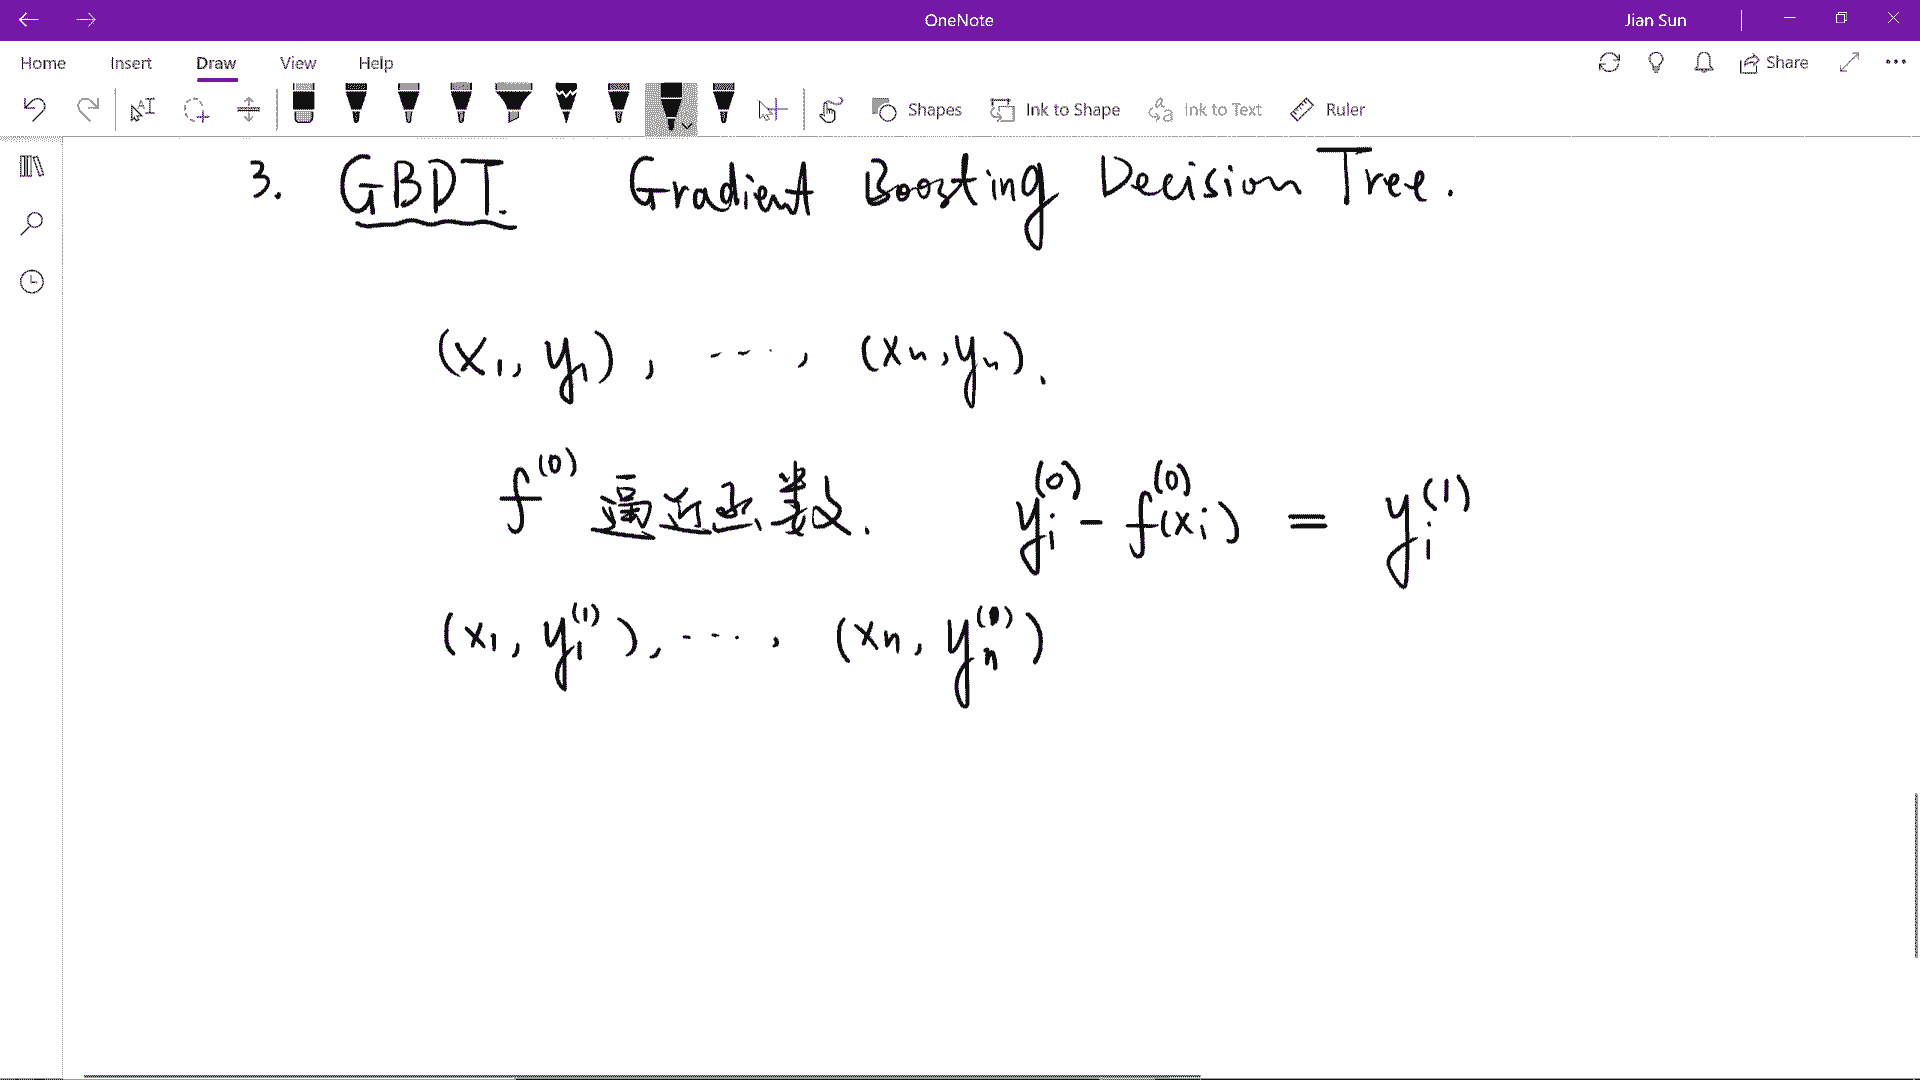 OneNote Jian Sun
Home Insert Draw View Help Share
Shapes Ink to Shape Ink to Text Ruler
3. GBDT. Gradient Boosting Decision Tree.
(x₁, y₁), ..., (xₙ, yₙ).
f⁽⁰⁾ 逼近函数. yᵢ⁽⁰⁾ - f⁽⁰⁾(xᵢ) = yᵢ⁽¹⁾
(x₁, y₁⁽¹⁾), ..., (xₙ, yₙ⁽¹⁾)